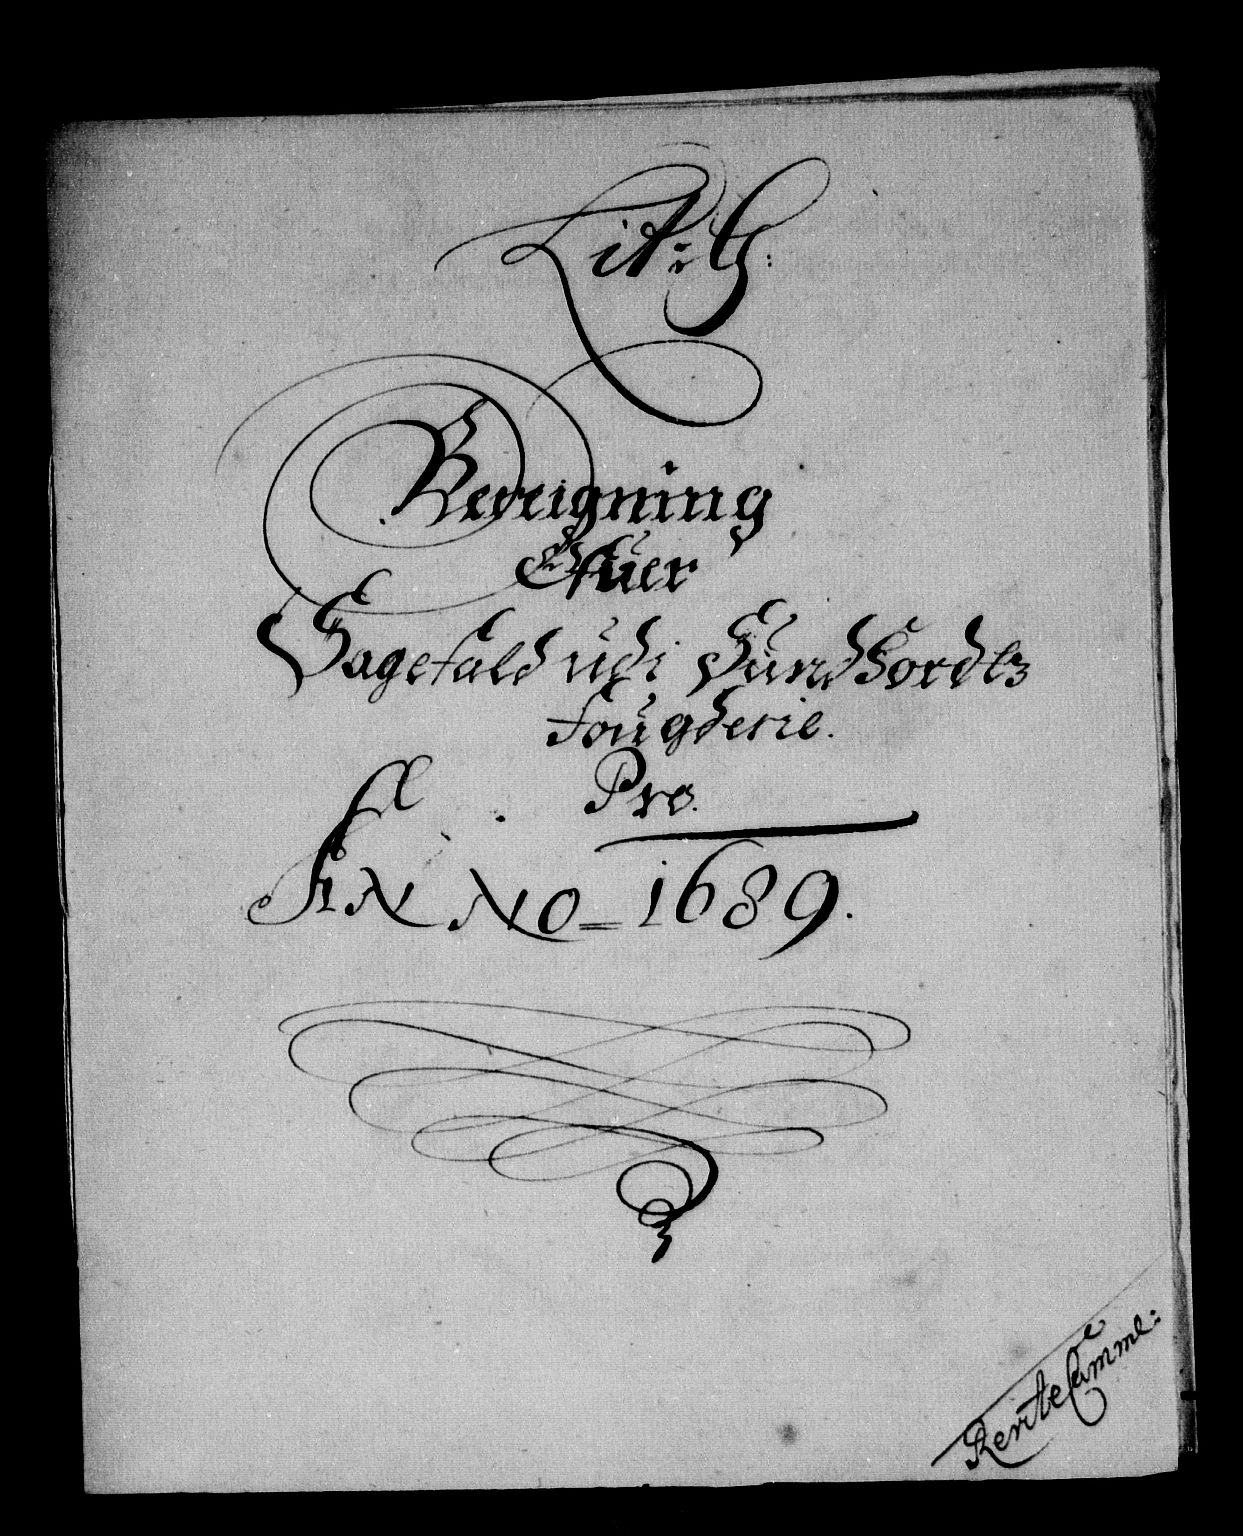 Lit: G:
Bereigning
Ofuer
Sagefald udi Sundhordlz
fougderie.
Pro.
ANNO = 1689.
Rente Camml: